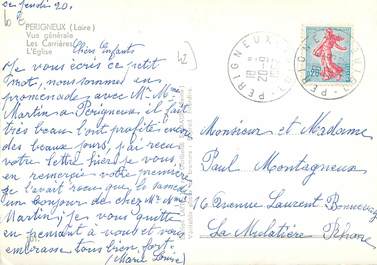 ce Jeudi 20.
PERIGNEUX (Loire)
Vue générale
Les Carrières
L'Eglise
Chers Enfants
Je vous écris ce petit
mot, nous sommes en
promenade avec Mr Mme
Martin a Perigneux il fait
très beau l'ont profite encore
des beaux jours, j'ai recu
votre lettre hier je vous
en remercie votre première
je l'avait recue que le samedi
un bonjour de chez Mr Mme
Martin, je vous quitte
en pensant à vous et vous
embrasse tous bien fort.
(Marie Louise)
PERIGNEUX
20-9
0,25
Monsieur et Madame
Paul Montagneux
16 Avenue Laurent Bonnevay
La Mulatière Rhône